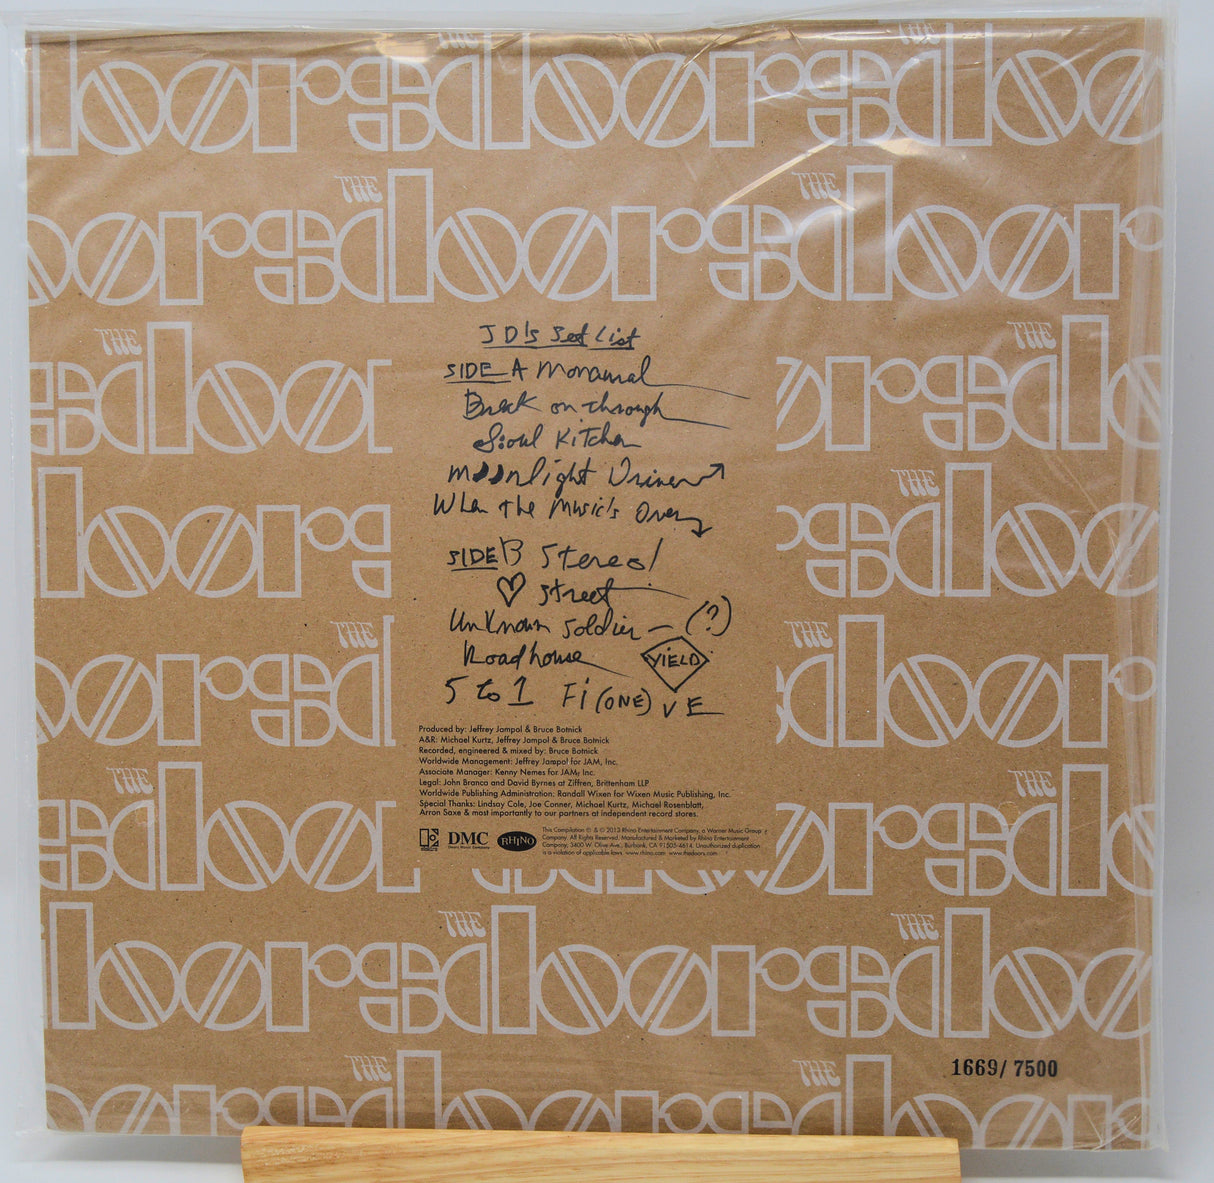 THE doors
JD's Set List
SIDE A Monaural
Break on through
Soul Kitchen
Moonlight Drive
When the Music's Over
SIDE B Stereo
♡ street
Unknown Soldier — (?)
Roadhouse YIELD
5 to 1 Fi (ONE) VE
Produced by: Jeffrey Jampol & Bruce Botnick
A&R: Michael Kurtz, Jeffrey Jampol & Bruce Botnick
Recorded, engineered & mixed by: Bruce Botnick
Worldwide Management: Jeffrey Jampol for JAM, Inc.
Associate Manager: Kenny Nemes for JAM, Inc.
Legal: John Branca and David Byrnes at Ziffren, Brittenham LLP
Worldwide Publishing Administration: Randall Wixen for Wixen Music Publishing, Inc.
Special Thanks: Lindsay Cole, Joe Conner, Michael Kurtz, Michael Rosenblatt,
Arron Saxe & most importantly to our partners at independent record stores.
DMC
Doors Music Company
RHINO
This Compilation ℗ & © 2013 Rhino Entertainment Company, a Warner Music Group
Company. All Rights Reserved. Manufactured & Marketed by Rhino Entertainment
Company, 3400 W. Olive Ave., Burbank, CA 91505-4614. Unauthorized duplication
is a violation of applicable laws. www.rhino.com www.thedoors.com
1669/ 7500